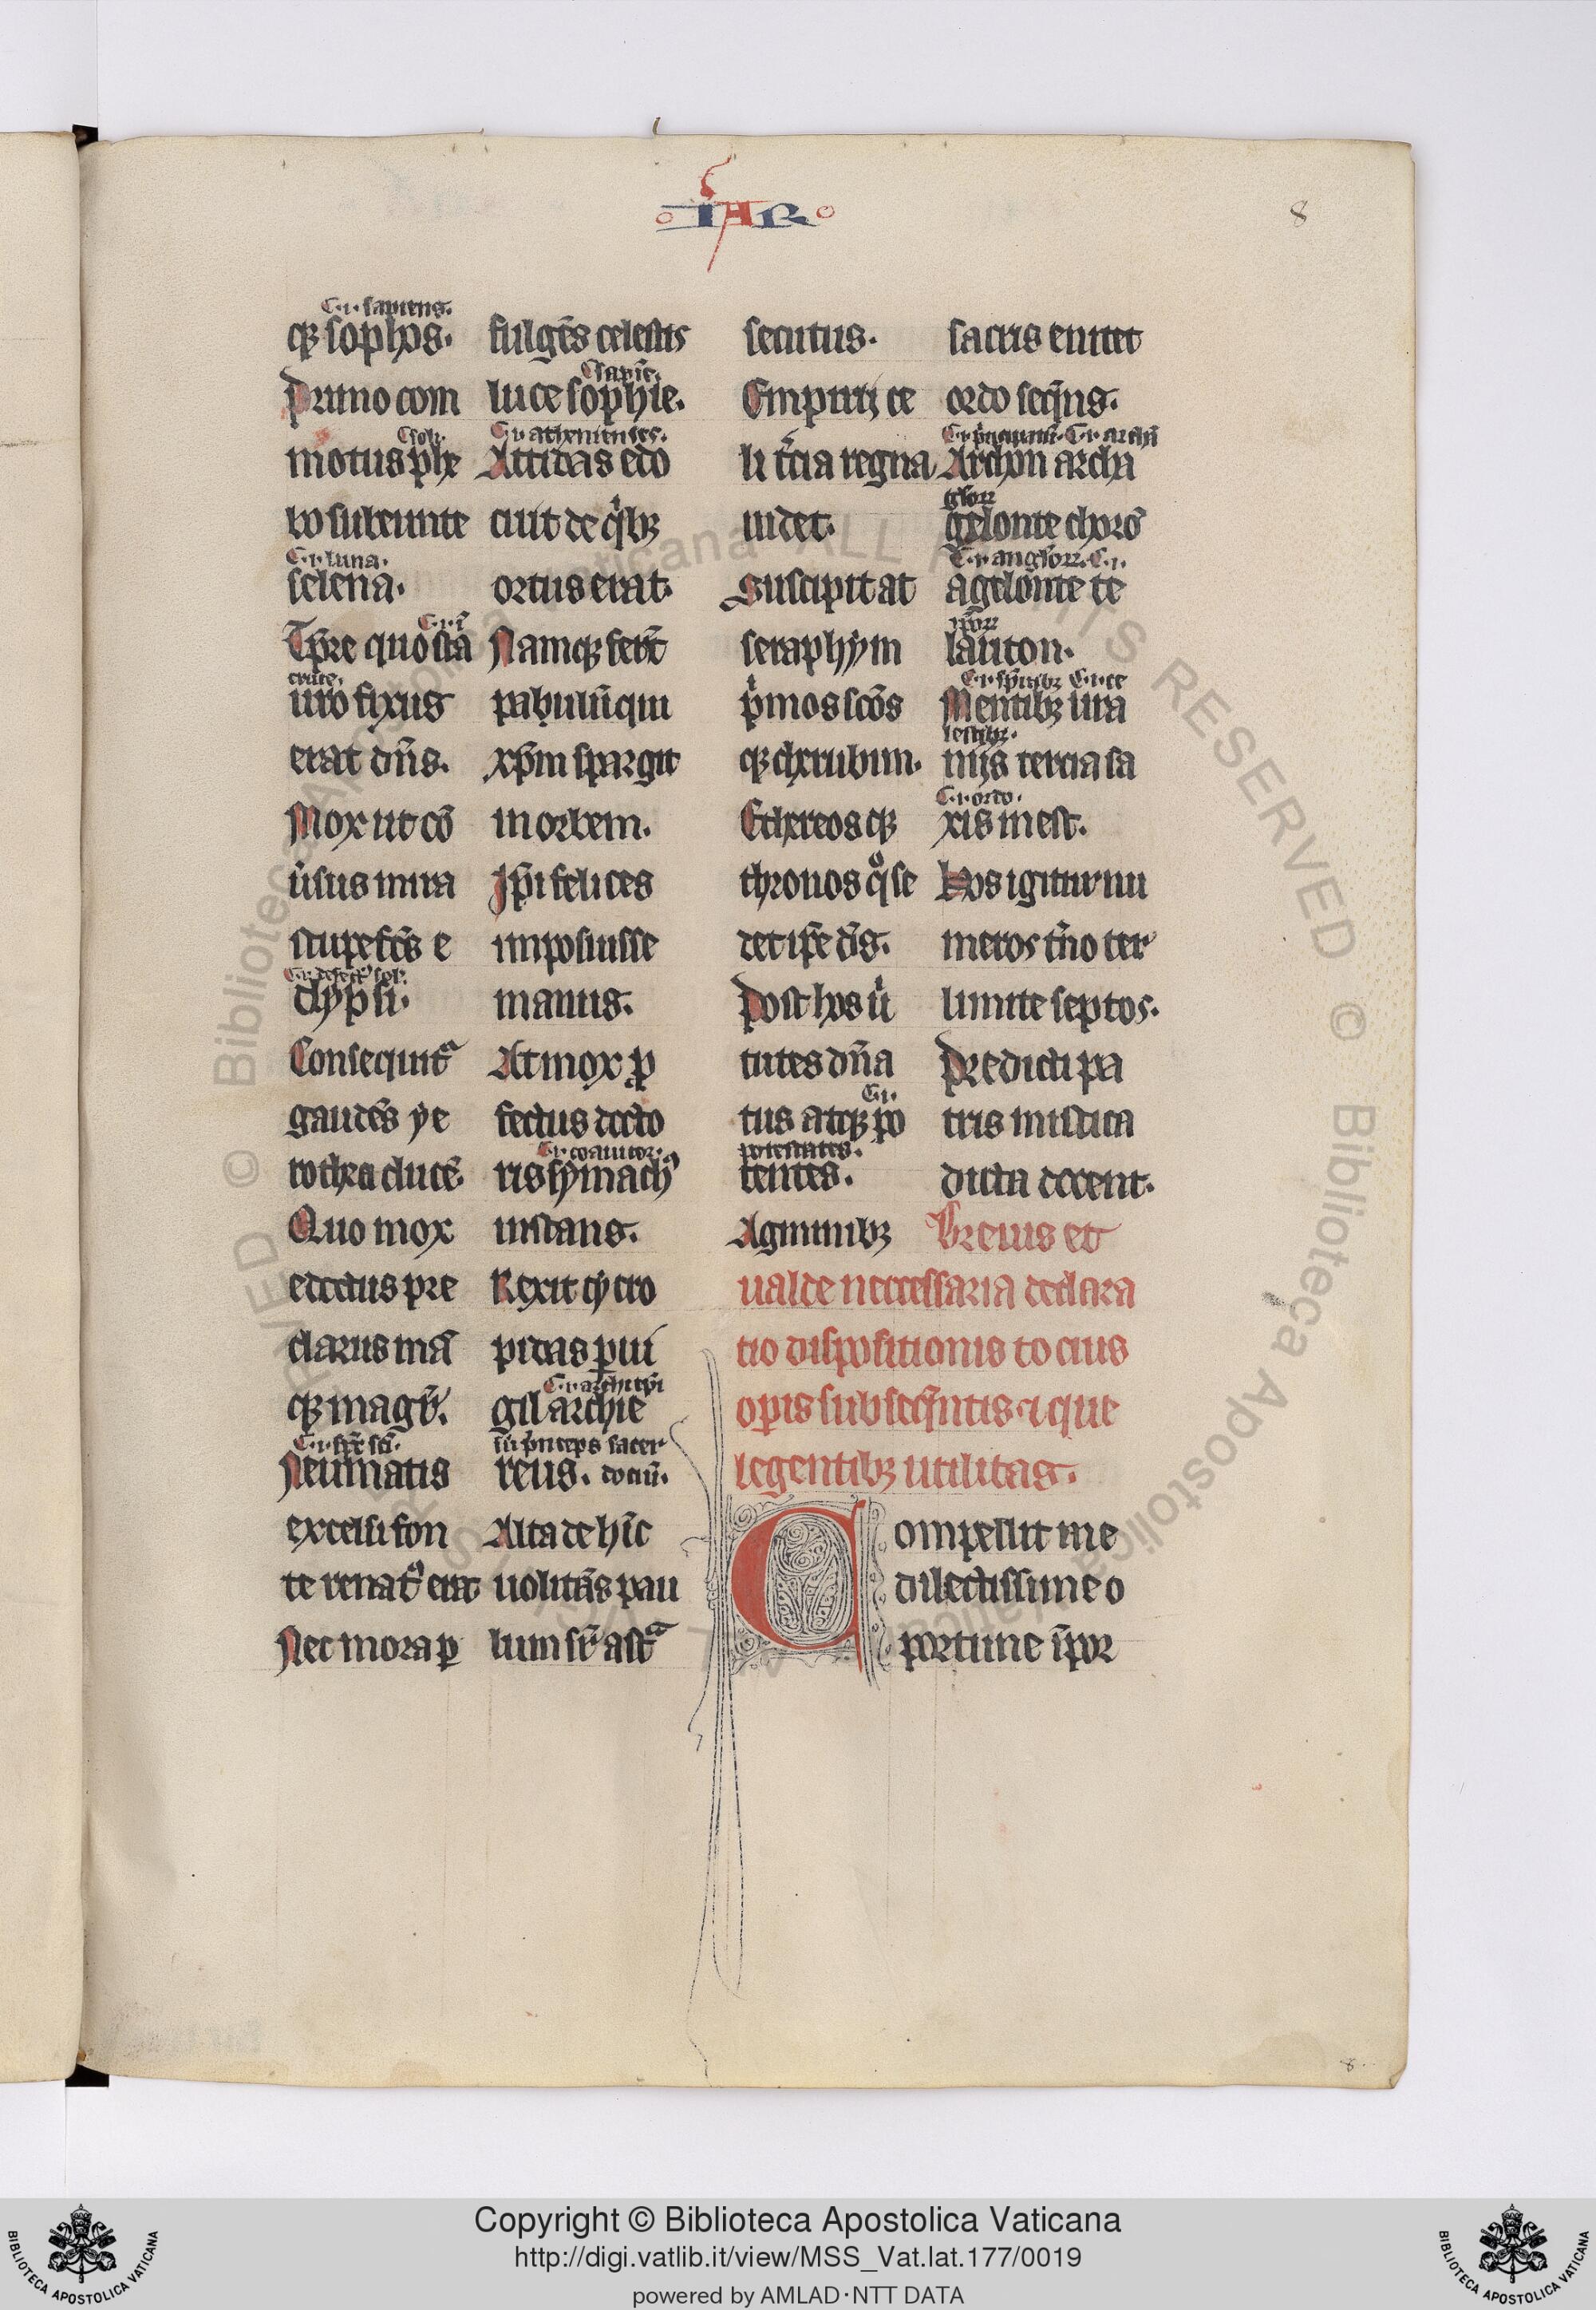 IAR
8
.i. sapiens.
qꝫ sophos.
Primo com
.sol.
motus phe
bo subeunte
.i. luna.
selena.
.i. i
Tp̄re quo sta
cruce.
uro fixus
erat dn̄s.
Mox ut co
uͥsus mira
stupefc̄s e
.i. defectꝰ sol.
clypsi.
Consequitᷓ
gaudēs ye
rothea ducē.
Quo mox
edoctus pre
clarus ma
qꝫ magr̄.
.i. sp̄c sc̄i.
Neumatis
excelsi fon
te renatꝰ erat
Nec mora ꝑ
fulgēs celestis
sapīe.
luce sophie.
.i. athenienses.
Attidas edo
cuit de qͥbꝫ
ortus erat.
Namqꝫ fert̄
pabulū qui
xp̄m spargit
in orbem.
Ip̄i felices
imposuisse
manus.
At mox ꝓ
fectus docto
.i. coadiutor.
ris symachꝰ
instans.
Rexit cycro
pidas ꝑui
.i. archiep̄i
gil archie
sū p̄nceps sacer
reus. dotiū.
Alta de hīc
uolitās pau
lum suꝑ astᷓ
secutus.
Empirij ce
li t̄cia regna
uidet.
Suscipit at
seraphym
pͥmos sc̄os
qꝫ cherubim.
Ethereosqꝫ
thronos qͦ se
det ip̄e ds̄.
Post hos uͥ
tutes dn̄a
.i.
tus atqꝫ po
potestates.
tentes.
Agminibꝫ
sacris enitet
ordo seqn̄s.
.i. pͥncipatuū. .i. archā
Archon archā
gloꝝ
gelonte choro
.i. angloꝝ. .i.
agelonte te
ipoꝝ
lauton.
.i. sp̄ritibꝫ .i. ce
Mentibꝫ ura
lestibꝫ.
nijs tercia sa
.i. ordo.
xis inest.
Hos igitur nu
meros t̄no ter
limite septos.
Predicti pa
tris mistica
dicta docent.
Breuis et
ualde neccessaria declara
tio dispositionis tocius
oꝑis subseqn̄tis ⁊ que
legentibꝫ utilitas.
Compellit me
dilectissime o
portune īpor
8
Copyright © Biblioteca Apostolica Vaticana
http://digi.vatlib.it/view/MSS_Vat.lat.177/0019
powered by AMLAD·NTT DATA
BIBLIOTECA APOSTOLICA VATICANA
BIBLIOTECA APOSTOLICA VATICANA